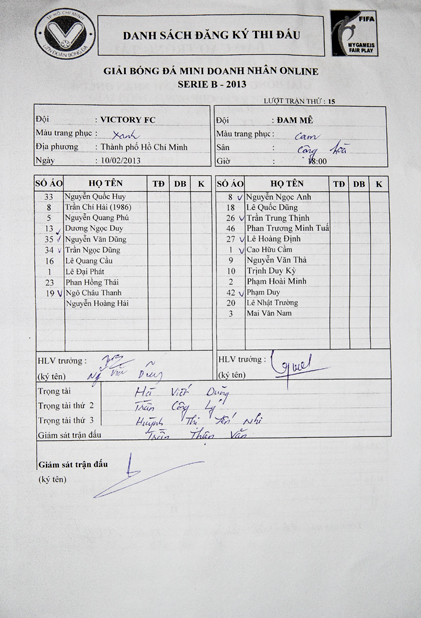 TP. HỒ CHÍ MINH
LIÊN ĐOÀN BÓNG ĐÁ
DANH SÁCH ĐĂNG KÝ THI ĐẤU
FIFA
MY GAME IS
FAIR PLAY
GIẢI BÓNG ĐÁ MINI DOANH NHÂN ONLINE
SERIE B - 2013
LƯỢT TRẬN THỨ : 15
Đội : VICTORY FC
Màu trang phục : Xanh
Địa phương : Thành phố Hồ Chí Minh
Ngày : 10/02/2013
Đội : ĐAM MÊ
Màu trang phục : Cam
Sân : Cộng hòa
Giờ : 18:00
SỐ ÁO HỌ TÊN TĐ DB K
33 Nguyễn Quốc Huy
8 Trần Chí Hải (1986)
5 Nguyễn Quang Phú
13 Dương Ngọc Duy
35 Nguyễn Văn Dũng
34 Trần Ngọc Dũng
16 Lê Quang Cầu
1 Lê Đại Phát
23 Phan Hồng Thái
19 Ngô Châu Thanh
Nguyễn Hoàng Hải
SỐ ÁO HỌ TÊN TĐ DB K
8 Nguyễn Ngọc Anh
18 Lê Quốc Dũng
26 Trần Trung Thịnh
46 Phan Trương Minh Tuấ
27 Lê Hoàng Định
1 Cao Hữu Cầm
9 Nguyễn Văn Thà
10 Trịnh Duy Kỳ
2 Phạm Hoài Minh
42 Phạm Duy
20 Lê Nhật Trường
3 Mai Văn Nam
HLV trưởng :
(ký tên) Ng Văn Dũng
HLV trưởng :
(ký tên)
Trọng tài Hà Viết Dũng
Trọng tài thứ 2 Trần Công Lý
Trọng tài thứ 3 Huỳnh Thị Nhi
Giám sát trận đấu Trần Thận Văn
Giám sát trận đấu
(ký tên)